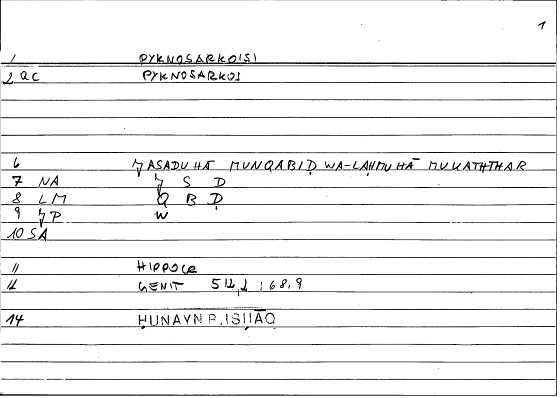 1
1 PYKNOSARKOISI
2 QC PYKNOSARKOS
6 ʿJASADUHĀ MUNQABIḌ WA-LAḤMUHĀ MUKATHTHAR
7 NA S D
8 LM Q B Ḍ
9 P W
10 SA
11 HIPPOCR
12 GENIT 54,2 ; 68,9
14 ḤUNAYN B. ISḤĀQ